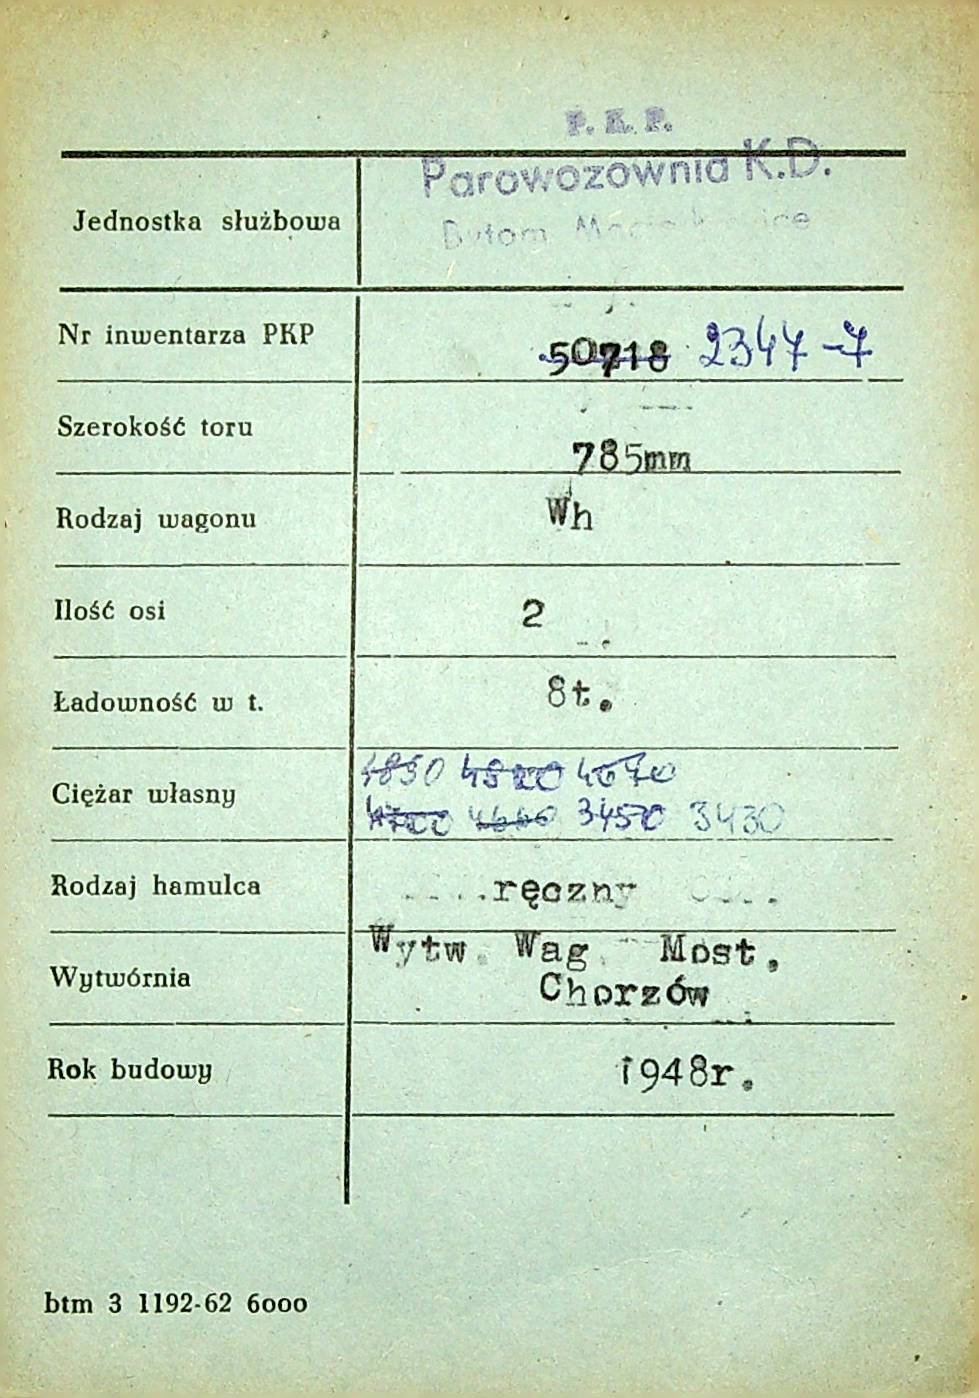 P. K. P.
Parowozownia K.D.
Jednostka służbowa
Bytom
Nr inwentarza PKP 50718 2347-7
Szerokość toru 785mm
Rodzaj wagonu Wh
Ilość osi 2
Ładowność w t. 8t.
4830 4670
Ciężar własny
3450 3430
Rodzaj hamulca ręczny
Wytw. Wag Most.
Wytwórnia
Chorzów
Rok budowy 1948r.
btm 3 1192-62 6000